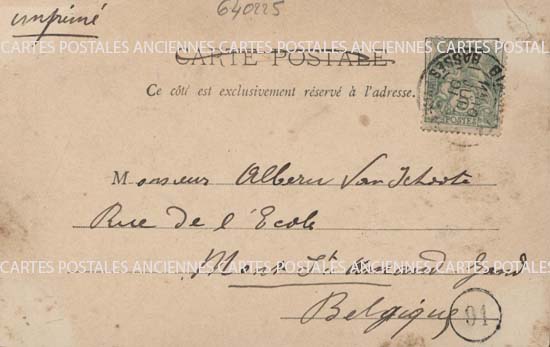 640225
imprimé
CARTE POSTALE
Ce côté est exclusivement réservé à l'adresse.
POSTES
BASSES
CARTES POSTALES ANCIENNES CARTES POSTALES ANCIENNES CARTES POSTALES
Monsieur Albert Van Schoote
Rue de l'École
CARTES POSTALES ANCIENNES CARTES POSTALES ANCIENNES CARTES POSTALES
Mont St Amand Gand
Belgique
91